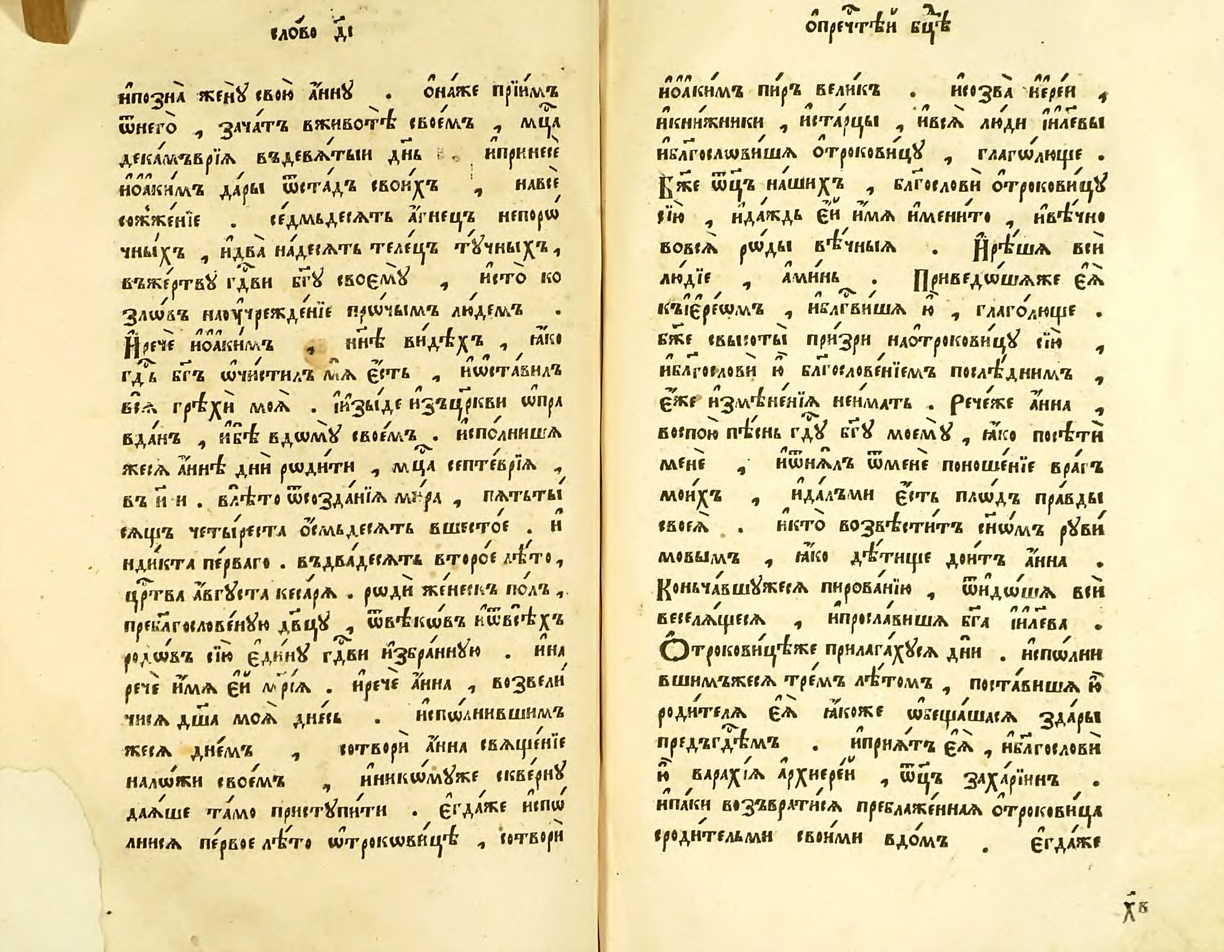 сло́во д҃і
и҆позна̀ женꙋ̀ свою̀ а҆́ннꙋ . ѻ҆на́же прїи́мъ
ѿнего̀ , зача́тъ вживотѣ̀ свое́мъ , мц҃а
дека́мъврїѧ въдевѧ́тыи дн҃ь . и҆принесѐ
і҆ѡаки́мъ да́ры ѿста́дъ свои́хъ , навсе
сожже́нїе . се́дмьдесѧтъ а҆́гнецъ непорѡ́
чныхъ , и҆два̀ на́десѧть теле́цъ тꙋ́чныхъ ,
въже́ртвꙋ гд҃ви бг҃ꙋ своемꙋ̀ , и҆сто̀ ко
злѡ́въ наоучрежде́нїе прѡ́чымъ лю́демъ .
И҆речѐ і҆ѡаки́мъ , нн҃ѣ ви́дѣхъ , ꙗ҆́ко
гд҃ь бг҃ъ ѡ҆чи́стилъ мѧ̀ є҆́сть , и҆ѡ҆ста́вилъ
всѧ̀ грѣхѝ моѧ̀ . і҆и҆зы́де и҆зъцр҃кви ѡ҆пра
вда́нъ , и҆бѣ̀ вдомꙋ̀ свое́мъ . и҆спо́лнишѧ
жесѧ а҆́ннѣ дни̑ рѡди́ти , мц҃а септе́врїѧ ,
въ и҃ и . влѣ́то ѿсозда́нїѧ ми́ра , пѧ́тьты́
сѧщъ четы́реста ѻ҆́смьдесѧть вшесто́е . и҆
нди́кта пе́рваго . въдва́десѧть второ́е лѣ́то ,
црⷭ҇тва а҆́вгꙋста ке́сарѧ . рѡдѝ же́нескъ по́лъ ,
пребл҃гослове́нꙋю дв҃цꙋ , ѿвѣ́кѡвъ и҆ѿвсѣ́хъ
родѡ́въ сїю̀ є҆ди́нꙋ гд҃ви и҆збра́ннꙋю . и҆на
речѐ и҆́мѧ є҆́й мр҃і́ѧ . и҆речѐ а҆́нна , возвели́
чисѧ дш҃а моѧ̀ дне́сь . и҆спо́лнившимъ
жесѧ дне́мъ , сотворѝ а҆́нна свѧще́нїе
нало́жи свое́мъ , и҆никомꙋ́же скве́рнꙋ
даѧ́ше та́мо пристꙋпи́ти . є҆гда́же и҆спо́
лнисѧ пе́рвое лѣ́то ѻ҆трокови́цѣ , сотворѝ
ѻ҆пречⷭ҇тѣй бц҃ѣ
і҆ѡаки́мъ пи́ръ вели́къ . и҆созва̀ і҆ере́и ,
и҆кни́жники , и҆ста́рцы , и҆всѧ̀ лю́ди і҆и҃левы
и҆бл҃гослови́шѧ ѻ҆трокови́цꙋ , глаго́люще .
Бж҃е ѻ҆т҃цъ на́шихъ , бл҃гословѝ ѻ҆трокови́цꙋ
сїю̀ , и҆да́ждь є҆́й и҆́мѧ и҆мени́то , и҆вѣ́чно
вовсѧ̀ рѡ́ды вѣ́чныѧ . И҆рѣ́шѧ всѝ
лю́дїе , а҆ми́нь . Приведѡ́шѧже є҆ѧ̀
къі҆ере́ѡмъ , и҆блгⷭ҇ви́шѧ ю҆̀ , глаго́люще .
бж҃е свысоты̀ при́зри наѻ҆трокови́цꙋ сїю̀ ,
и҆бл҃гословѝ ю҆̀ бл҃гослове́нїемъ послѣ́днимъ ,
є҆́же и҆змѣне́нїѧ неи́мать . Рече́же а҆́нна ,
воспою̀ пѣ́снь гд҃ꙋ бг҃ꙋ моемꙋ̀ , ꙗ҆́ко посѣтѝ
менѐ , и҆ѿꙗ҆́лъ ѿменѐ поноше́нїе вра́гъ
мои́хъ , и҆да́лъми є҆́сть пло́дъ пра́вды
своеѧ̀ . и҆кто̀ возвѣсти́тъ сн҃ѡмъ рꙋви́
мовымъ , ꙗ҆́ко дѣ́тище дои́тъ а҆́нна .
Коньча́вшꙋжесѧ пирова́нїю , ѿидо́шѧ всѝ
веселѧ́щесѧ , и҆просла́вишѧ бг҃а і҆и҃лева .
Ѻ҆трокови́цѣже прилага́хꙋсѧ дни̑ . и҆спо́лни
вшимъжесѧ тре́мъ лѣ́томъ , поста́вишѧ ю҆̀
роди́телѧ є҆ѧ̀ ꙗ҆́коже ѡ҆беща́шасѧ зда́ры
предъгдⷭ҇емъ . и҆прїѧ́тъ є҆ѧ̀ , и҆бл҃гословѝ
ю҆̀ вара́хїѧ а҆рхиере́й , ѻ҆т҃цъ заха́рїинъ .
и҆па́ки возъврати́сѧ преблаже́ннаѧ ѻ҆трокови́ца
сроди́тельми свои́ми вдо́мъ . є҆гда́же
х҃в